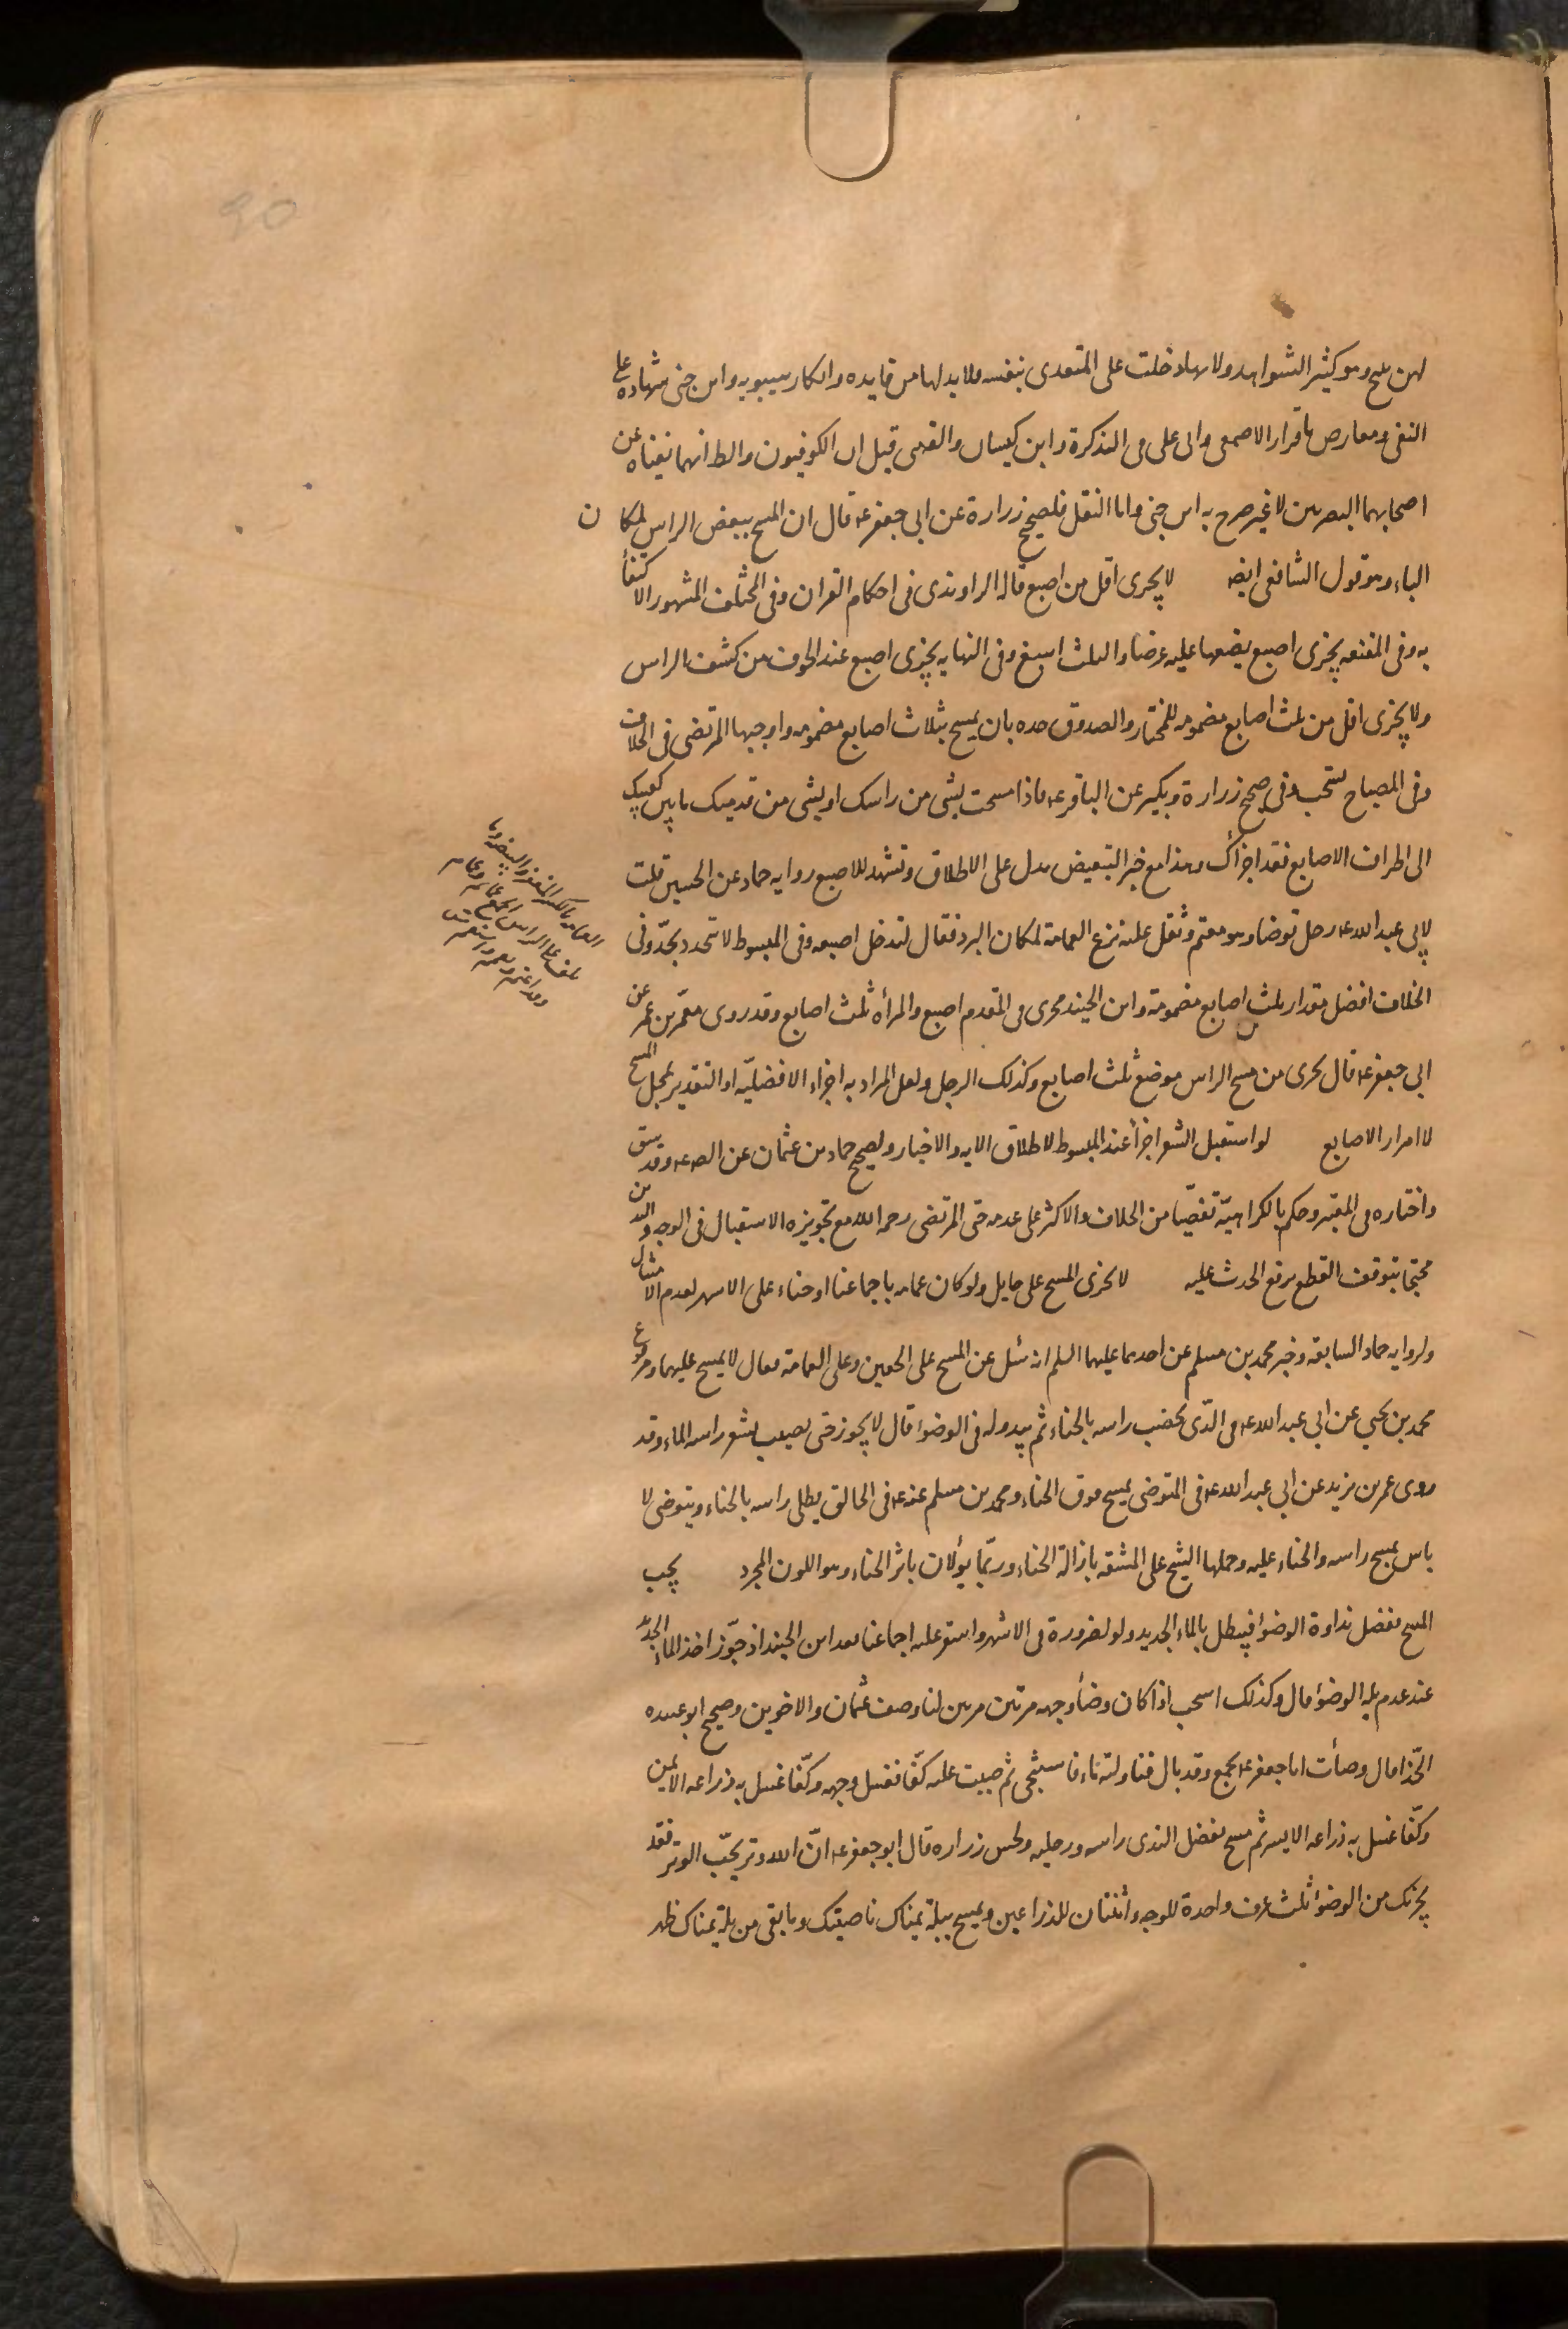 لهن نئيج وهو كثير الشواهد ولانها دخلت على المتعدى بنفسه فلابد لها من فايده وانكار سيبويه وابن جنى شهادة على
النفى ومعارض باقرار الاصمعى وابى على فى التذكرة وابن كيسان والقتبى قيل ان الكوفيون والظ انهما نفياه عن
اصحابهما البصريين لا غير صرح به ابن جنى واما النقل فلصحيح زرارة عن ابى جعفر ع قال ان المسح ببعض الراس لمكان
الباء وهو قول الشافعى ايضا لا يجزى اقل من اصبع قاله الراوندى فى احكام القران وفى المختلف المشهور الاكتفأ
به وفى المقنعه يجزى اصبع يضعها عليه عرضا والثلث اسبغ وفى النهايه يجزى اصبع عند الخوف من كشف الراس
ولا يجزى اقل من ثلث اصابع مضمومه للمختار والصدوق حده بان يمسح بثلاث اصابع مضمومه واوجبها المرتضى فى الخلاف
وفى المصباح تستحب وفى صحيح زرارة وبكير عن الباقر ع فاذا مسحت بشى من راسك او بشى من قدميك ما بين كعبيك
الى اطراف الاصابع فقد اجزأك وهذا مع خبر التبعيض يدل على الاطلاق وتشهد للاصبع روايه حماد عن الحسين قلت
لابى عبد الله ع رجل توضا وهو معتم وثقل عليه نزع العمامة لمكان البرد فقال لتدخل اصبعه وفى المبسوط لا تتحدد بحدّ وفى
الخلاف افضل مقدار ثلث اصابع مضمومة وابن الجنيد يجزى فى المقدم اصبع والمرأه ثلث اصابع وقد روى معمّر بن عمر عن
ابى جعفر ع قال يجزى من مسح الراس موضع ثلث اصابع وكذلك الرجل ولعل المراد به اجزاء الافضليّه او التقدير لمحل المسح
لا امرار الاصابع لو استقبل الشعر اجزأ عند المبسوط لاطلاق الايه والاخبار ولصحيح حماد بن عثمان عن الص ع وقد سبق
واختاره فى المعتبر وحكم بالكراهيّة تفصّيا من الخلاف والاكثر على عدمه حتى المرتضى رحمه الله مع تجويزه الاستقبال فى الوجه واليدين
محتجا بتوقف القطع برفع الحدث عليه لا يجزى المسح على حايل ولو كان عمامه باجماعنا او حناء على الاشهر لعدم الامتثال
ولروايه حماد السابقه وخبر محمد بن مسلم عن احدهما عليهما السلم انه سئل عن المسح على الخفين وعلى العمامة فقال لا يمسح عليهما ومرفوع
محمد بن يحيى عن ابى عبد الله ع فى الذى يخضب راسه بالحناء ثم يبدو له فى الوضوء قال لا يجوز حتى يصيب بشر راسه الماء وقد
روى عمر بن يزيد عن ابى عبد الله ع فى المتوضى يمسح فوق الحناء ومحمد بن مسلم عنه ع فى الحالق يطلى راسه بالحناء ويتوضى لا
باس بمسح راسه والحناء عليه وحملها الشيخ على المشقه بازالة الحناء وربّما يؤلان باثر الحناء وهو اللون المجرد يجب
المسح بفضل نداوة الوضوء فيبطل بالماء الجديد ولو لضرورة فى الاشهر واستقر عليه اجماعنا بعد ابن الجنيد اذ جوّز اخذ الماء الجديد
عند عدم بلة الوضوء قال وكذلك استحب اذا كان وضأ وجهه مرتين مرتين لنا وصف عثمان والاخوين وصحيح ابو عبيده
الحذّا قال وضأت ابا جعفر ع بجمع وقد بال فناولته ماء فاستنجى ثم صببت عليه كفّا فغسل وجهه وكفّا غسل به ذراعه الايمن
وكفّا غسل به ذراعه الايسر ثم مسح بفضل الندى راسه ورجليه ولحسن زراره قال ابو جعفر ع انّ الله وتر يحبّ الوتر فقد
يجزئك من الوضوء ثلث غرف واحدة للوجه واثنتان للذراعين وتمسح ببلة يمناك ناصيتك وما بقى من بلة يمناك ظهر